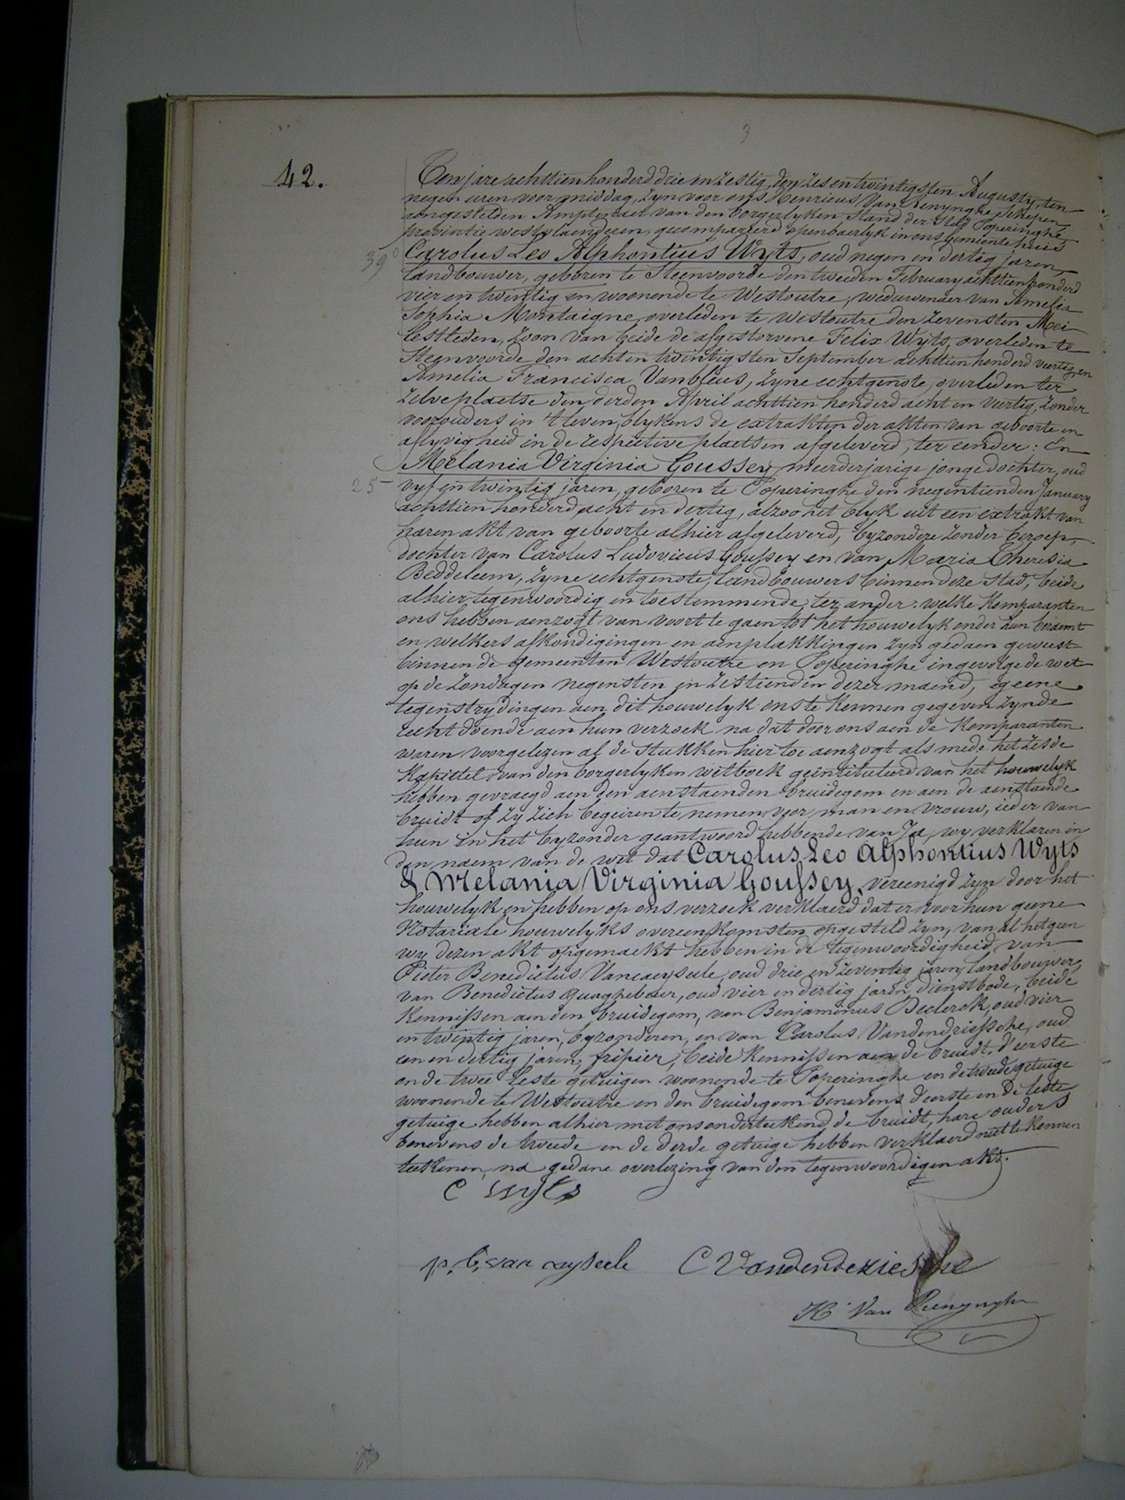 3
42.
Ten jare achttien honderd drie en zestig, den zes en twintigsten Augusty, ten
negen uren voor middag, zyn voor ons Henricus Van Renynghe Schepen
aengestelden Amptenaer van den borgerlyken Stand der Stad Poperinghe
provintie westvlaenderen, gecompareerd openbaerlyk in ons Gemeentehuis
39 Carolus Leo Alphontius Wyts, oud negen en dertig jaren,
landbouwer, geboren te Steenvoorde den tweeden February achttien honderd
vier en twintig en woonende te Westoutre, weduwenaer van Amelia
Sophia Montaigne, overleden te Westoutre den zevensten Mei
lestleden, zoon van beide de afgestorvene Felix Wyts, overleden te
Steenvoorde den achten twintigsten September achttien honderd veertig en
Amelia Francisca Vanbleus, zyne echtgenote, overleden ter
zelve plaetse den derden April achttien honderd acht en veertig, zonder
voorouders in 't leven, blykens de extrakten der akten van geboorte en
aflyvigheid in de respective plaetsen afgeleverd, ter eender: En
Melania Virginia Goussey, meerderjarige jonge dochter, oud
25 vyf en twintig jaren, geboren te Poperinghe den negentienden January
achttien honderd acht en dertig, alzoo het blyk uit een extrakt van
haren akt van geboorte alhier afgeleverd, byzondere zonder beroep,
dochter van Carolus Ludovicus Goussey en van Maria Theresia
Beddeleem, zyne echtgenote, landbouwers binnen deze stad, beide
alhier tegenwoordig en toestemmende, ter ander: welke Komparanten
ons hebben aenzogt van voort te gaen tot het houwelyk onder hun beraemt
en welkers afkondigingen en aenplakkingen zyn gedaen geweest
binnen de gemeenten Westoutre en Poperinghe ingevolge de wet
op de zondagen negensten en zestienden dezer maend, geene
tegenstrydingen aen dit houwelyk ons te kennen gegeven zynde
recht doende aen hun verzoek na dat door ons aen de Komparanten
waren voorgelezen al de stukken hier toe aenzogt als mede het zesde
Kapittel van den borgerlyken wetboek geïntituleerd van het houwelyk
hebben gevraegd aen den aenstaenden bruidegom en aen de aenstaende
bruidt of zy zich begeiren te nemen voor man en vrouw, ieder van
hun in het byzonder geantwoord hebbende van Ja, wy verklaren in
den naem van de wet dat Carolus Leo Alphontius Wyts
& Melania Virginia Goussey, vereenigd zyn door het
houwelyk en hebben op ons verzoek verklaerd dat er voor hun geene
Notariale houwelyks overeenkomsten opgesteld zyn, van al hetgeen
wy dezen akt opgemaekt hebben in de tegenwoordigheid van
Pieter Benedictus Vancayseele, oud drie en zeventig jaren, landbouwer,
van Benedictus Quaghebeur, oud vier en dertig jaren, dienstbode, beide
Kennissen aen den bruidegom, van Benjaminus Declerck, oud vier
en twintig jaren, byzonderen, en van Carolus Vandendriessche, oud
een en dertig jaren, fripier, beide kennissen aen de bruidt, d'eerste
en de twee leste getuigen woonende te Poperinghe en de tweede getuige
woonende te Westoutre en den bruidegom benevens d'eerste en de leste
getuige hebben alhier met ons onderteekend, de bruidt, hare ouders
benevens de tweede en de derde getuige hebben verklaerd niet te kennen
teekenen, na gedane overlezing van den tegenwoordigen akt.
C Wyts
p. b. van cayseele C Vandendriessche
H. Van Renynghe